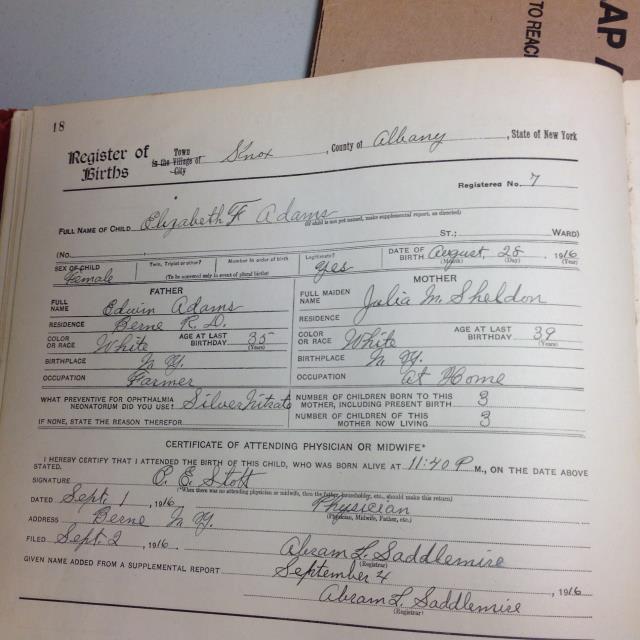 AP
TO REACH
18
Register of Births
Town
in the Village of Knox, County of Albany, State of New York
City
Registered No. 7
FULL NAME OF CHILD Elizabeth F Adams
(If child is not yet named, make supplemental report, as directed)
(No. ST.; WARD)
SEX OF CHILD Female Twin, Triplet or other? Number in order of birth Legitimate? Yes DATE OF BIRTH August 28, 1916
(To be answered only in event of plural births) (Month) (Day) (Year)
FATHER MOTHER
FULL NAME Edwin Adams FULL MAIDEN NAME Julia M. Sheldon
RESIDENCE Berne R.D. RESIDENCE
COLOR OR RACE White AGE AT LAST BIRTHDAY 35 (Years) COLOR OR RACE White AGE AT LAST BIRTHDAY 39 (Years)
BIRTHPLACE N.Y. BIRTHPLACE N.Y.
OCCUPATION Farmer OCCUPATION At Home
WHAT PREVENTIVE FOR OPHTHALMIA NEONATORUM DID YOU USE? Silver Nitrate NUMBER OF CHILDREN BORN TO THIS MOTHER, INCLUDING PRESENT BIRTH 3
IF NONE, STATE THE REASON THEREFOR NUMBER OF CHILDREN OF THIS MOTHER NOW LIVING 3
CERTIFICATE OF ATTENDING PHYSICIAN OR MIDWIFE*
I HEREBY CERTIFY THAT I ATTENDED THE BIRTH OF THIS CHILD, WHO WAS BORN ALIVE AT 11:40 P M., ON THE DATE ABOVE
STATED.
SIGNATURE P. E. Stott
(*When there was no attending physician or midwife, then the father, householder, etc., should make this return)
DATED Sept. 1, 1916 Physician
(Physician, Midwife, Father, etc.)
ADDRESS Berne N.Y.
FILED Sept. 2, 1916. Abram L. Saddlemire
(Registrar)
GIVEN NAME ADDED FROM A SUPPLEMENTAL REPORT September 4, 1916
Abram L. Saddlemire
(Registrar)